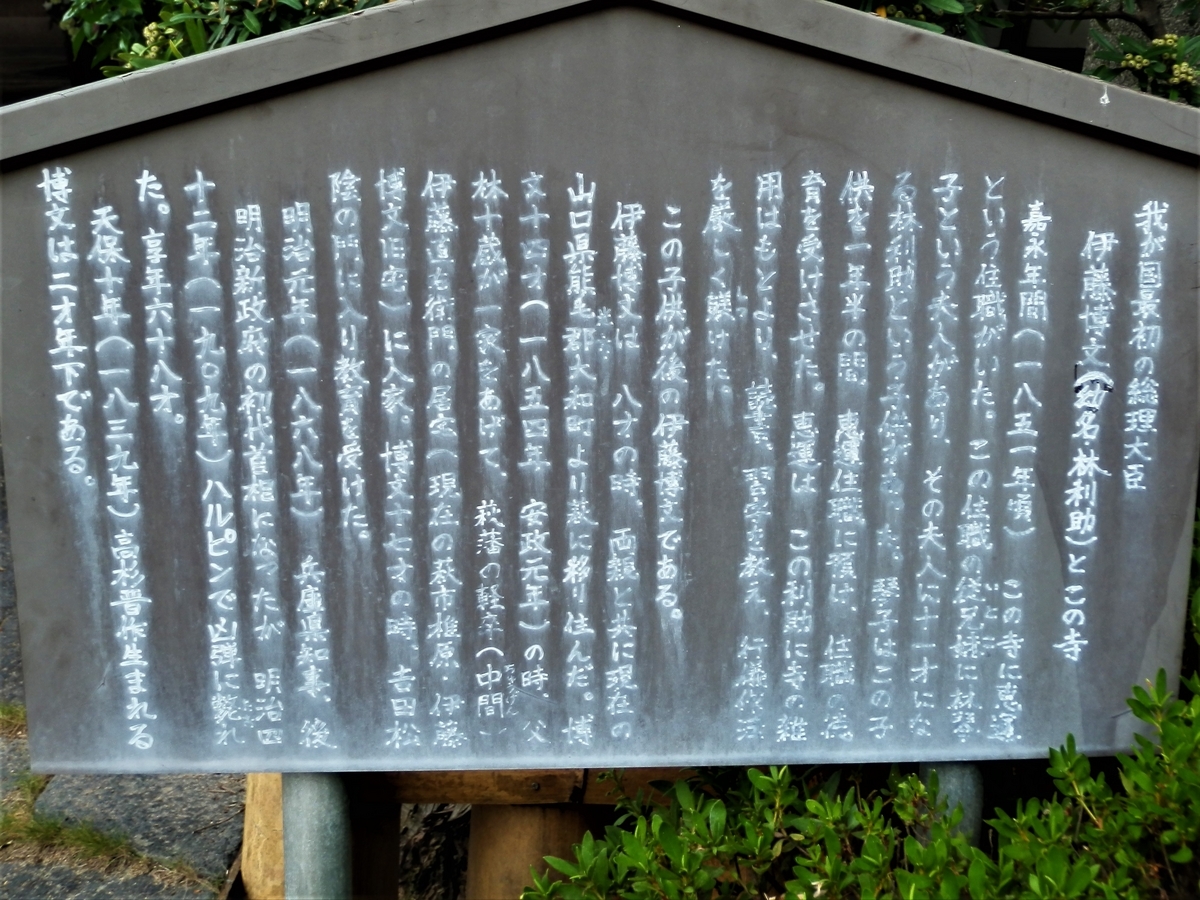 我が国最初の総理大臣
伊藤博文(幼名林利助)とこの寺
嘉永年間(一八五一年頃) この寺に恵運
という住職がいた。この住職の従兄妹に林琴
子という夫人があり、その夫人に十一才にな
る林利助という子供がいた。琴子はこの子
供を一年半の間、恵運住職に預け、住職の
育を受けさせた。恵運は この利助に寺の雑
用はもとより、読書、習字を教え、行儀作法
を厳しく躾けた。
この子供が後の伊藤博文である。
伊藤博文は 八才の時、両親と共に現在の
山口県熊毛郡大和町より萩に移り住んだ。博
文十四才(一八五四年 安政元年)の時、父
林十蔵が一家をあげて、萩藩の軽卒(中間)
伊藤直右衛門の居宅(現在の萩市椎原・伊藤
博文旧宅)に入家。博文十七才の時、吉田松
陰の門に入り教育を受けた。
明治元年(一八六八年) 兵庫県知事、後
明治新政府の初代首相になったが 明治四
十二年(一九〇九年)ハルピンで凶弾に斃れ
た。享年六十八才。
天保十年(一八三九年)高杉晋作生まれる
博文は二才年下である。